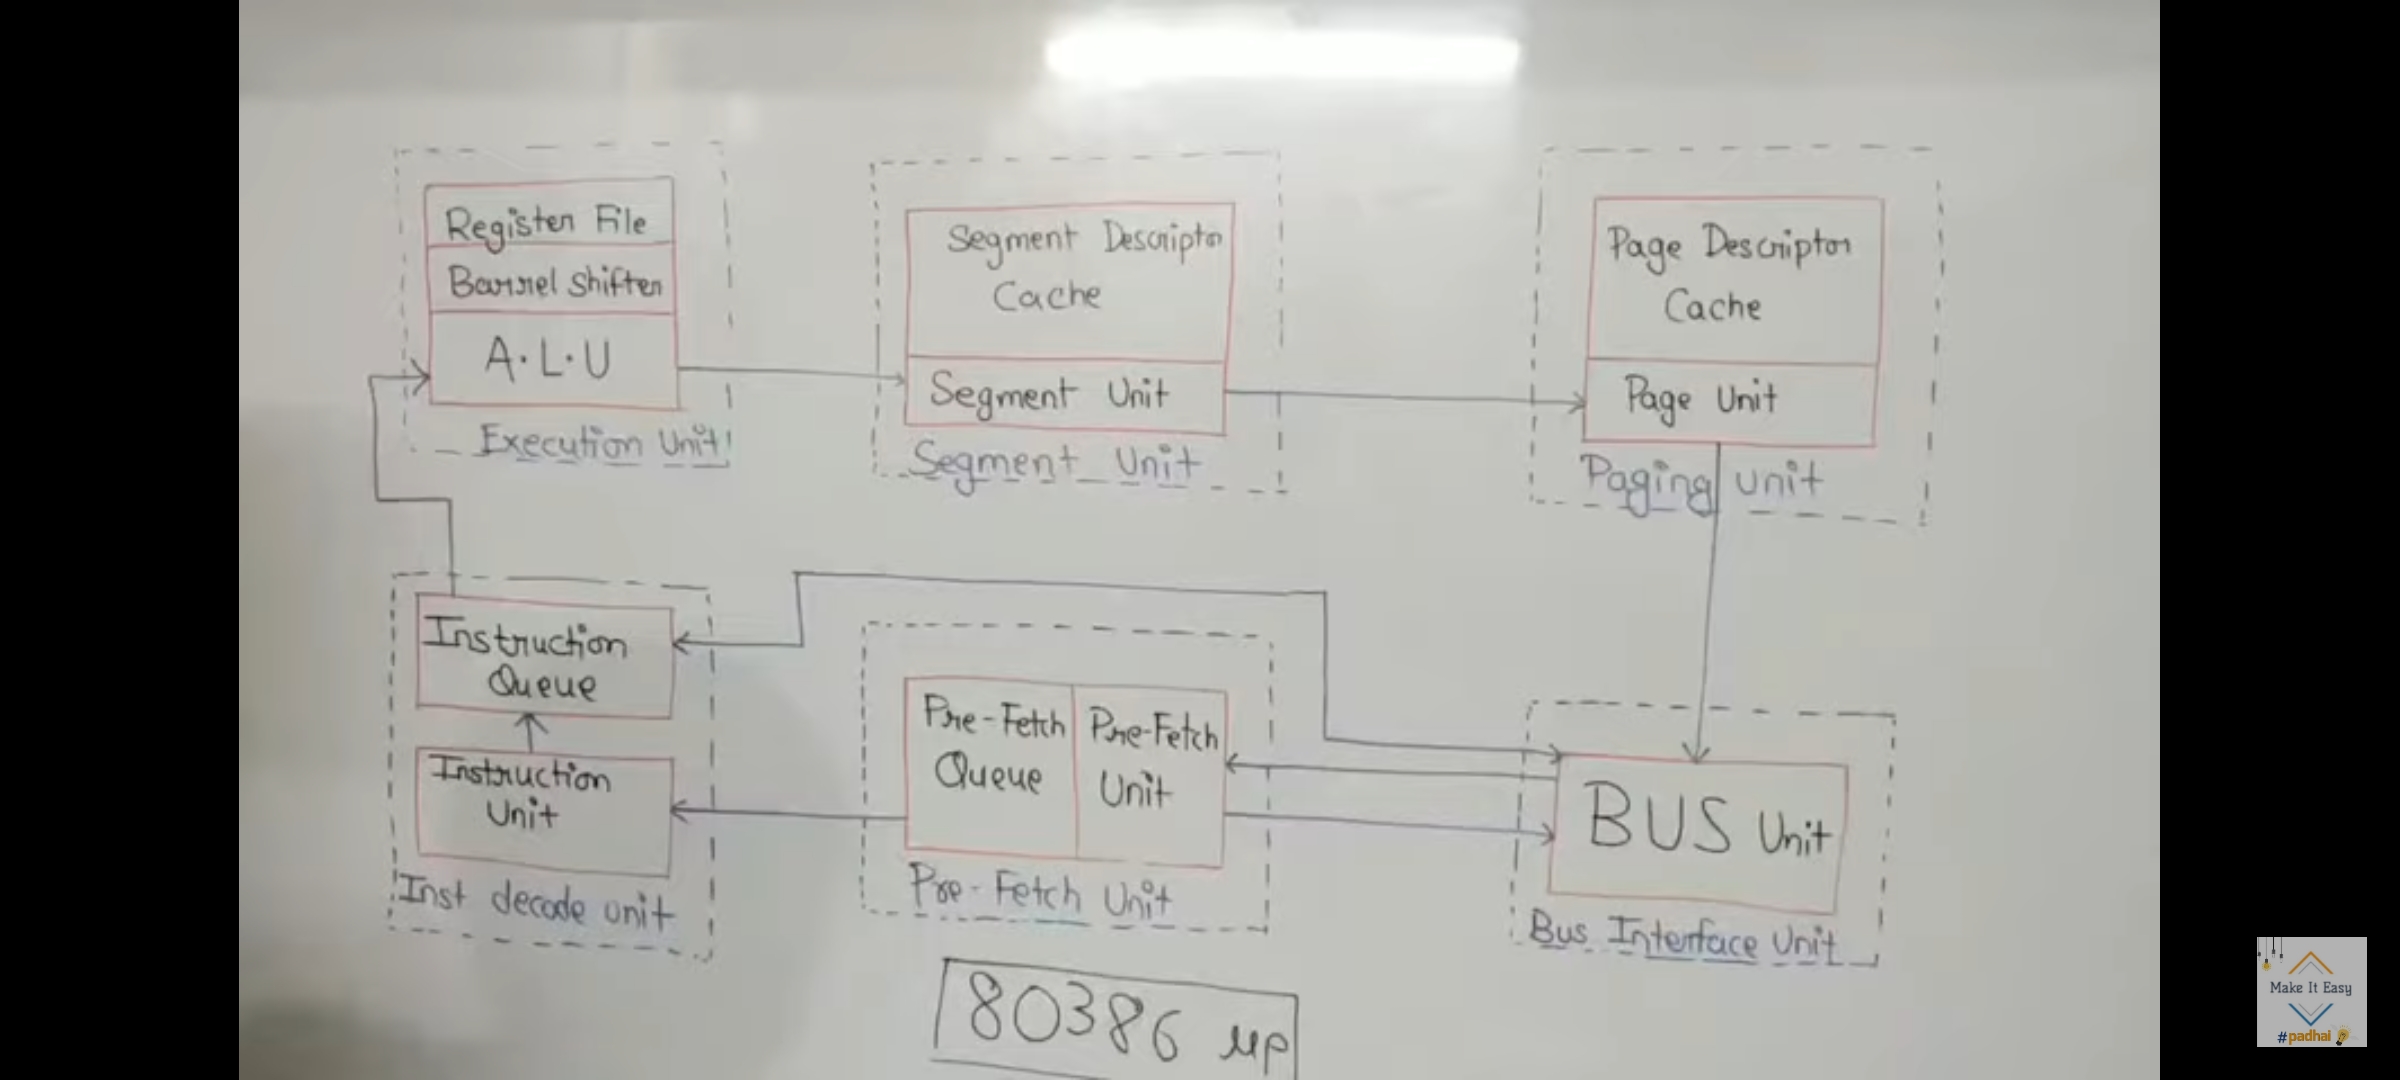 Register File
Barrel Shifter
A.L.U
Execution Unit
Segment Descriptor
Cache
Segment Unit
Segment Unit
Page Descriptor
Cache
Page Unit
Paging unit
Instruction
Queue
Instruction
Unit
Inst decode unit
Pre-Fetch
Queue
Pre-Fetch
Unit
Pre-Fetch Unit
BUS Unit
Bus Interface Unit
80386 µp
Make It Easy
#padhai